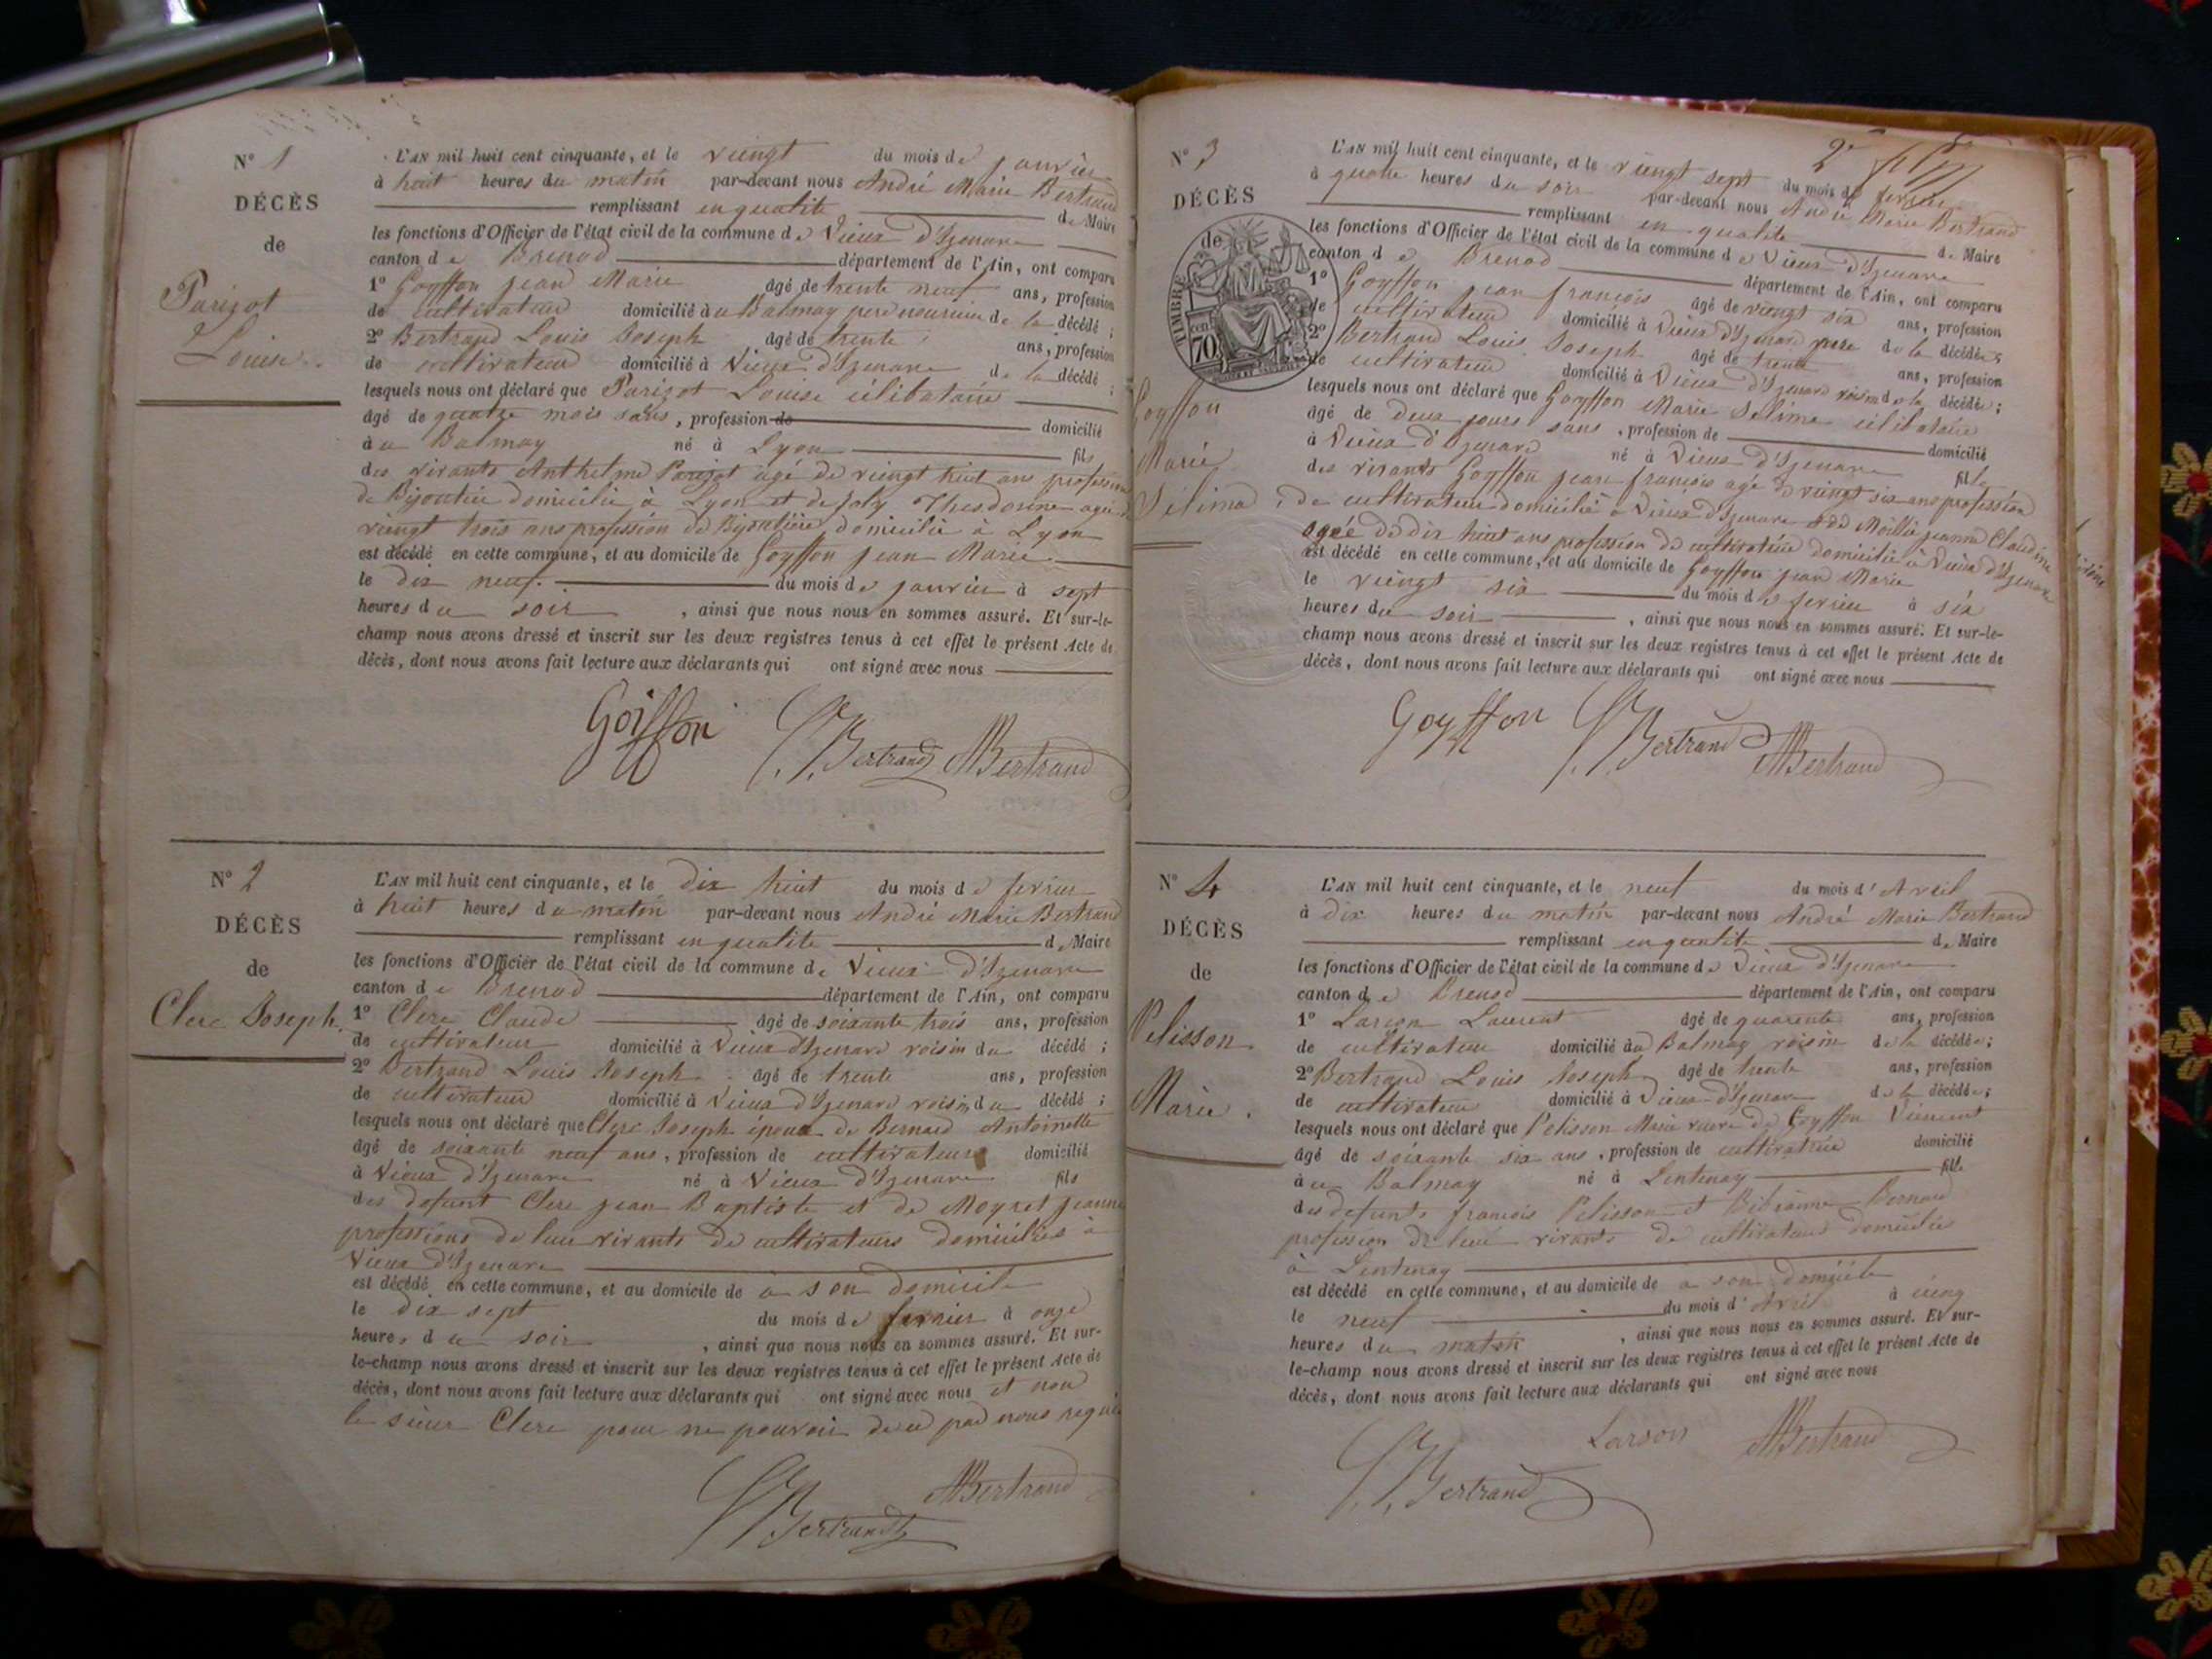 N° 1
DÉCÈS
de
Parizot
Louise.
L'AN mil huit cent cinquante, et le vingt du mois de janvier
à huit heures du matin par-devant nous André Marie Bertrand
remplissant en qualité de Maire
les fonctions d'Officier de l'état civil de la commune de Vieux d'Izenave
canton de Brenod département de l'Ain, ont comparu
1° Goyffon jean Marie âgé de trente neuf ans, profession
de cultivateur domicilié à au Balmay père nourricier de la décédé ;
2° Bertrand Louis Joseph âgé de trente ans, profession
de cultivateur domicilié à Vieux d'Izenave de la décédé ;
lesquels nous ont déclaré que Parizot Louise célibataire
âgé de quatre mois sans, profession de domicilié
à au Balmay né à Lyon fils
des vivants Anthelme Parizot agé de vingt huit ans profession
de Bijoutier domicilié à Lyon et de Joly agée de
vingt trois ans profession de Bijoutière domicilié à Lyon
est décédé en cette commune, et au domicile de Goyffon jean Marie
le dix neuf du mois de janvier à sept
heures du soir, ainsi que nous nous en sommes assuré. Et sur-le-
champ nous avons dressé et inscrit sur les deux registres tenus à cet effet le présent Acte de
décès, dont nous avons fait lecture aux déclarants qui ont signé avec nous
Goiffon Bertrand Bertrand
N° 2
DÉCÈS
de
Clerc Joseph
L'AN mil huit cent cinquante, et le dix huit du mois de fevrier
à huit heures du matin par-devant nous André Marie Bertrand
remplissant en qualité de Maire
les fonctions d'Officier de l'état civil de la commune de Vieux d'Izenave
canton de Brenod département de l'Ain, ont comparu
1° Clerc Claude âgé de soixante trois ans, profession
de cultivateur domicilié à Vieux d'Izenave voisin du décédé ;
2° Bertrand Louis Joseph âgé de trente ans, profession
de cultivateur domicilié à Vieux d'Izenave voisin du décédé ;
lesquels nous ont déclaré que Clerc Joseph époux de Bernard Antoinette
âgé de soixante neuf ans, profession de cultivateur domicilié
à Vieux d'Izenave né à Vieux d'Izenave fils
des defunt Clerc jean Baptiste et de Moyret jeanne
professions de leur vivants de cultivateurs domiciliés à
Vieux d'Izenave
est décédé en cette commune, et au domicile de à son domicile
le dix sept du mois de fevrier à onze
heures du soir, ainsi que nous nous en sommes assuré. Et sur-
le-champ nous avons dressé et inscrit sur les deux registres tenus à cet effet le présent Acte de
décès, dont nous avons fait lecture aux déclarants qui ont signé avec nous et non
le sieur Clerc pour ne pouvoir de ce par nous requis
Bertrand Bertrand
2e
N° 3
DÉCÈS
de
TIMBRE
70
Goyffon
Marie
Sélima
L'AN mil huit cent cinquante, et le vingt sept du mois de fevrier
à quatre heures du soir par-devant nous André Marie Bertrand
remplissant en qualité de Maire
les fonctions d'Officier de l'état civil de la commune de Vieux d'Izenave
canton de Brenod département de l'Ain, ont comparu
1° Goyffon jean françois âgé de vingt six ans, profession
de cultivateur domicilié à Vieux d'Izenave père de la décédée ;
2° Bertrand Louis Joseph âgé de trente ans, profession
de cultivateur domicilié à Vieux d'Izenave voisin de la décédée ;
lesquels nous ont déclaré que Goyffon Marie Sélima célibataire
âgé de deux jours sans, profession de domicilié
à Vieux d'Izenave né à Vieux d'Izenave fille
des vivants Goyffon jean françois agé de vingt six ans profession
de cultivateur domicilié à Vieux d'Izenave et de Moillie jeanne Claudine
agée de dix huit ans profession de cultivatrice domicilié à Vieux d'Izenave
est décédé en cette commune, et au domicile de Goyffon jean Marie
le vingt six du mois de fevrier à six
heures du soir, ainsi que nous nous en sommes assuré. Et sur-le-
champ nous avons dressé et inscrit sur les deux registres tenus à cet effet le présent Acte de
décès, dont nous avons fait lecture aux déclarants qui ont signé avec nous
Goyffon Bertrand Bertrand
N° 4
DÉCÈS
de
Pelisson
Marie.
L'AN mil huit cent cinquante, et le neuf du mois d'Avril
à dix heures du matin par-devant nous André Marie Bertrand
remplissant en qualité de Maire
les fonctions d'Officier de l'état civil de la commune de Vieux d'Izenave
canton de Brenod département de l'Ain, ont comparu
1° Larson Laurent âgé de quarente ans, profession
de cultivateur domicilié à au Balmay voisin de la décédée ;
2° Bertrand Louis Joseph âgé de trente ans, profession
de cultivateur domicilié à Vieux d'Izenave de la décédée ;
lesquels nous ont déclaré que Pelisson Marie veuve de Goyffon Vincent
âgé de soixante six ans, profession de cultivatrice domicilié
à au Balmay né à Lentenay fille
des defunts françois Pelisson et Bibianne Bernard
profession de leur vivants de cultivateurs domiciliés
à Lentenay
est décédé en cette commune, et au domicile de à son domicile
le neuf du mois d'Avril à cinq
heures du matin, ainsi que nous nous en sommes assuré. Et sur-
le-champ nous avons dressé et inscrit sur les deux registres tenus à cet effet le présent Acte de
décès, dont nous avons fait lecture aux déclarants qui ont signé avec nous
Bertrand Larson Bertrand